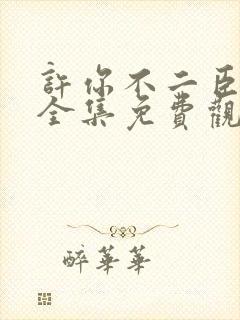 許你不二臣
全集免費觀
醉華華